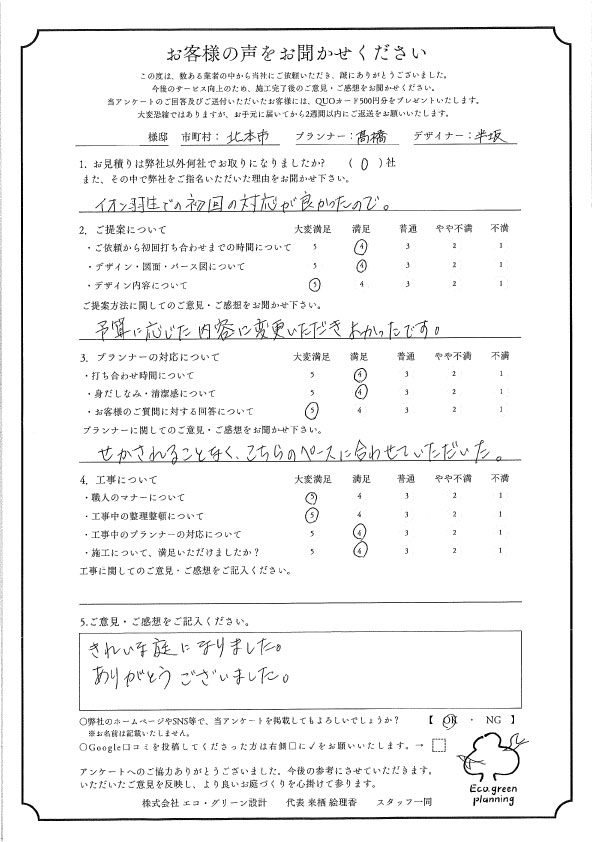 お客様の声をお聞かせください
この度は、数ある業者の中から当社にご依頼いただき、誠にありがとうございました。
今後のサービス向上のため、施工完了後のご意見・ご感想をお聞かせください。
当アンケートのご回答及びご送付いただいたお客様には、QUOカード500円分をプレゼントいたします。
大変恐縮ではありますが、お手元に届いてから2週間以内にご返送をお願いいたします。
様邸 市町村： 北本市 プランナー：髙橋 デザイナー：半坂
1. お見積りは弊社以外何社でお取りになりましたか? ( 0 ) 社
また、その中で弊社をご指名いただいた理由をお聞かせ下さい。
イオン羽生での初回の対応が良かったので。
2. ご提案について 大変満足 満足 普通 やや不満 不満
・ご依頼から初回打ち合わせまでの時間について 5 4 3 2 1
・デザイン・図面・パース図について 5 4 3 2 1
・デザイン内容について 5 4 3 2 1
ご提案方法に関してのご意見・ご感想をお聞かせ下さい。
予算に応じた内容に変更いただきよかったです。
3. プランナーの対応について 大変満足 満足 普通 やや不満 不満
・打ち合わせ時間について 5 4 3 2 1
・身だしなみ・清潔感について 5 4 3 2 1
・お客様のご質問に対する回答について 5 4 3 2 1
プランナーに関してのご意見・ご感想をお聞かせ下さい。
せかされることなく、こちらのペースに合わせていただいた。
4. 工事について 大変満足 満足 普通 やや不満 不満
・職人のマナーについて 5 4 3 2 1
・工事中の整理整頓について 5 4 3 2 1
・工事中のプランナーの対応について 5 4 3 2 1
・施工について、満足いただけましたか？ 5 4 3 2 1
工事に関してのご意見・ご感想をご記入ください。
5.ご意見・ご感想をご記入ください。
きれいな庭になりました。
ありがとうございました。
○弊社のホームページやSNS等で、当アンケートを掲載してもよろしいでしょうか？ 【 OK ・ NG 】
※お名前は記載いたしません。
○Google口コミを投稿してくださった方は右側□に✓をお願いいたします。→
アンケートへのご協力ありがとうございました。今後の参考にさせていただきます。
いただいたご意見を反映し、より良いお庭づくりを心掛けて参ります。
Eco.green
planning
株式会社 エコ・グリーン設計 代表 来栖 絵理香 スタッフ一同